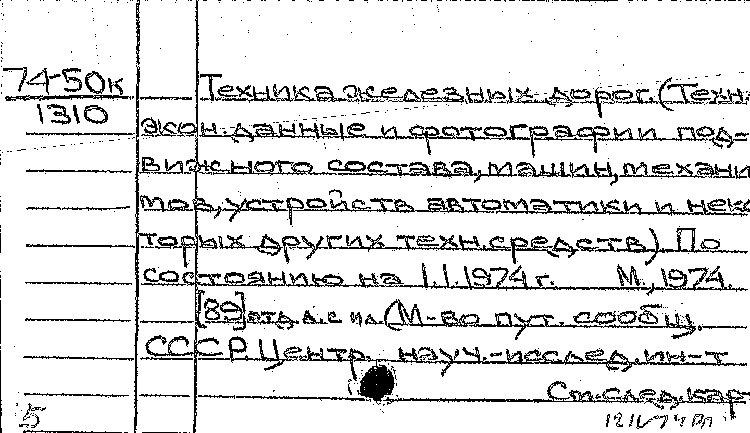 74-50к
1310
Техника железных дорог. (Техн.
экон. данные и фотографии под-
вижного состава, машин, механи
мов, устройств автоматики и нек
торых других техн. средств). По
состоянию на 1.1.1974 г. М., 1974.
[89] отд. л. с ил. (М-во пут. сообщ.
СССР. Центр. науч.-исслед. ин-т
См. след. карт
5